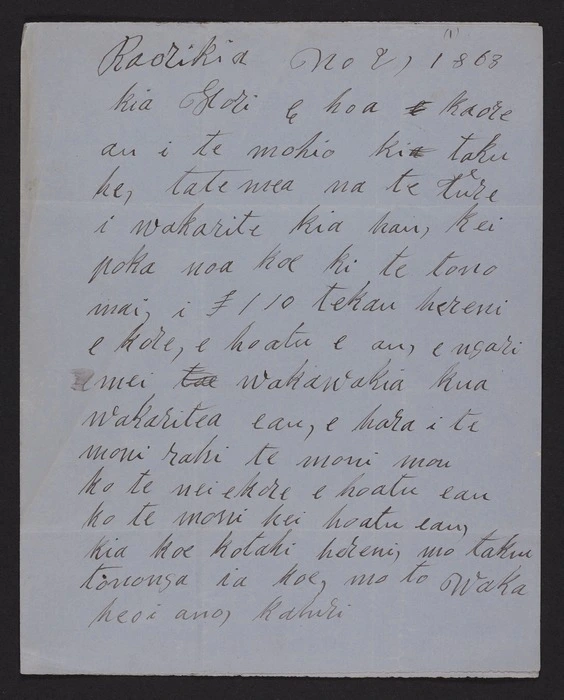 (1)
Raorikia No 2, 1868
kia Hori e hoa kaore
au i te mohio kia taku
he, tatemea na te ture
i wakarite kia hau, kei
poka noa koe ki te tono
mai, i £1 10 tekau hereni
e kore, e hoatu e au, e ngari
mei wakawakia kua
wakaritea eau, e hara i te
moni rahi te moni mou
ko te nei ekore e hoatu eau
ko te moni kei hoatu eau,
kia koe kotahi hereni, mo taku
tononga ia koe, mo to Waka
heoi ano,